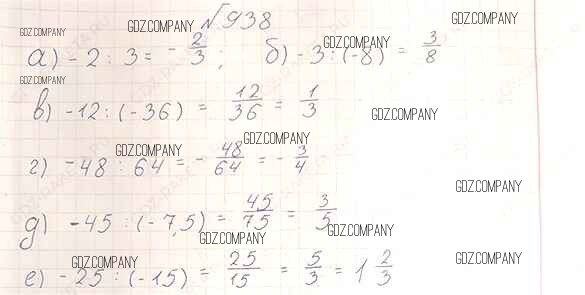 №938
а) -2 : 3 = -2/3; б) -3 : (-8) = 3/8
в) -12 : (-36) = 12/36 = 1/3
г) -48 : 64 = -48/64 = -3/4
д) -45 : (-7,5) = 45/75 = 3/5
е) -25 : (-15) = 25/15 = 5/3 = 1 2/3
GDZ.COMPANY
GDZ.COMPANY
GDZ.COMPANY
GDZ.COMPANY
GDZ.COMPANY
GDZ.COMPANY
GDZ.COMPANY
GDZ.COMPANY
GDZ.COMPANY
GDZ.COMPANY
GDZ.COMPANY
GDZ.COMPANY